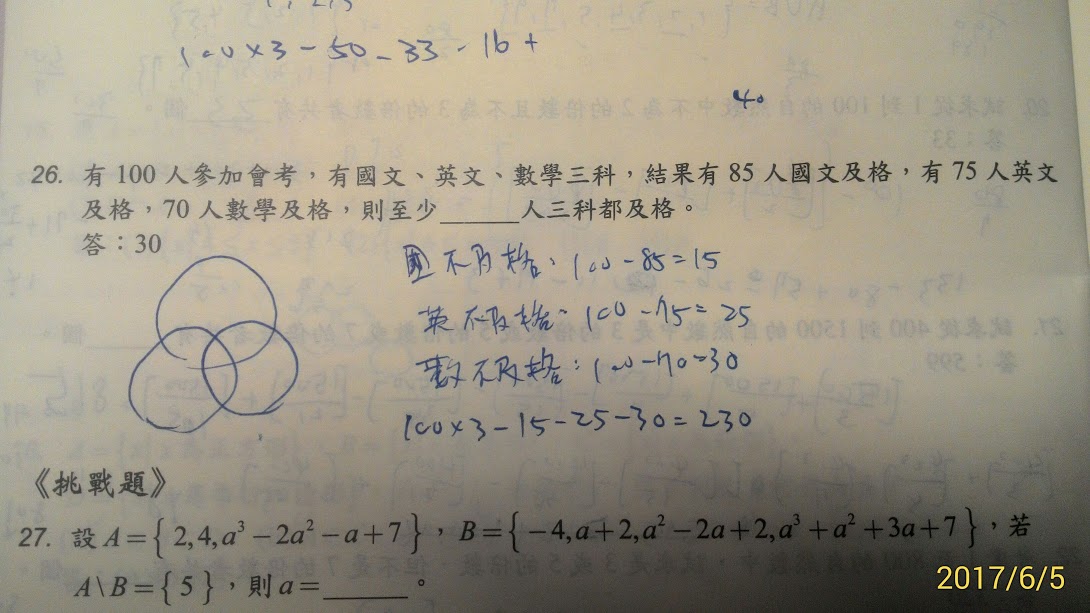 100×3-50-33-16+
40
26. 有 100 人參加會考,有國文、英文、數學三科,結果有 85 人國文及格,有 75 人英文
及格,70 人數學及格,則至少______人三科都及格。
答:30
國不及格:100-85=15
英不及格:100-75=25
數不及格:100-70=30
100×3-15-25-30=230
《挑戰題》
27. 設 A={2,4,a³-2a²-a+7},B={-4,a+2,a²-2a+2,a³+a²+3a+7},若
A\B={5},則 a=______。
2017/6/5